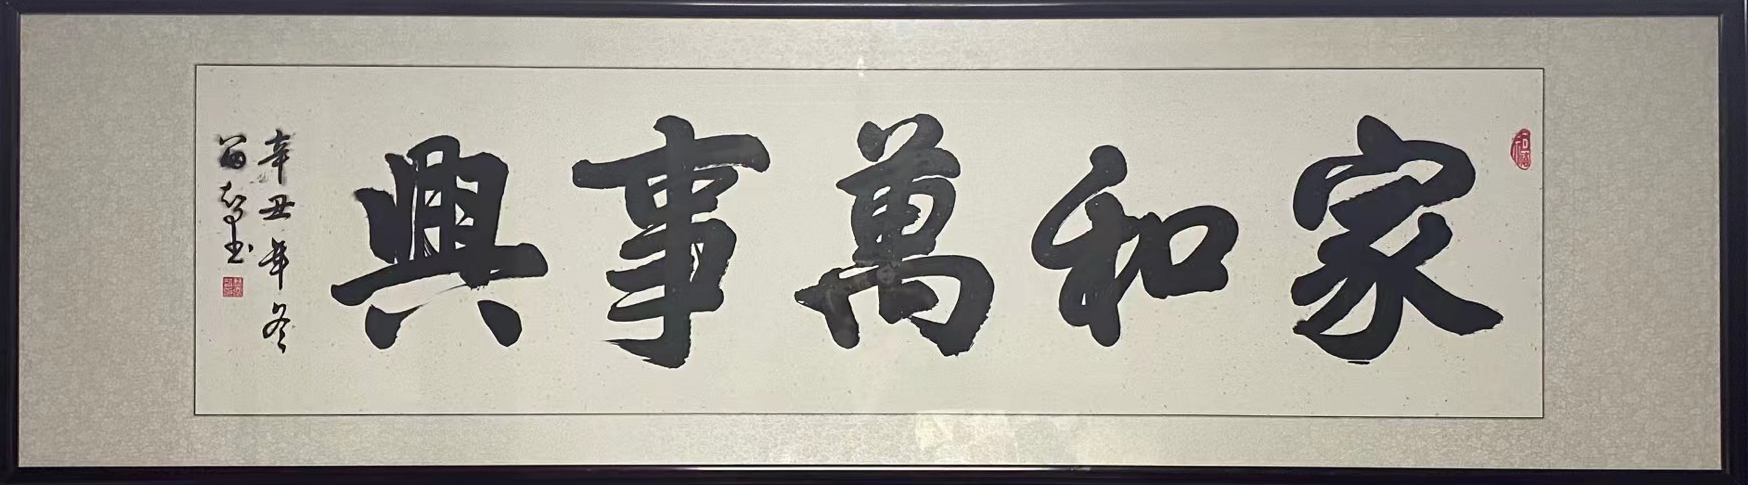 家和萬事興
辛丑年冬